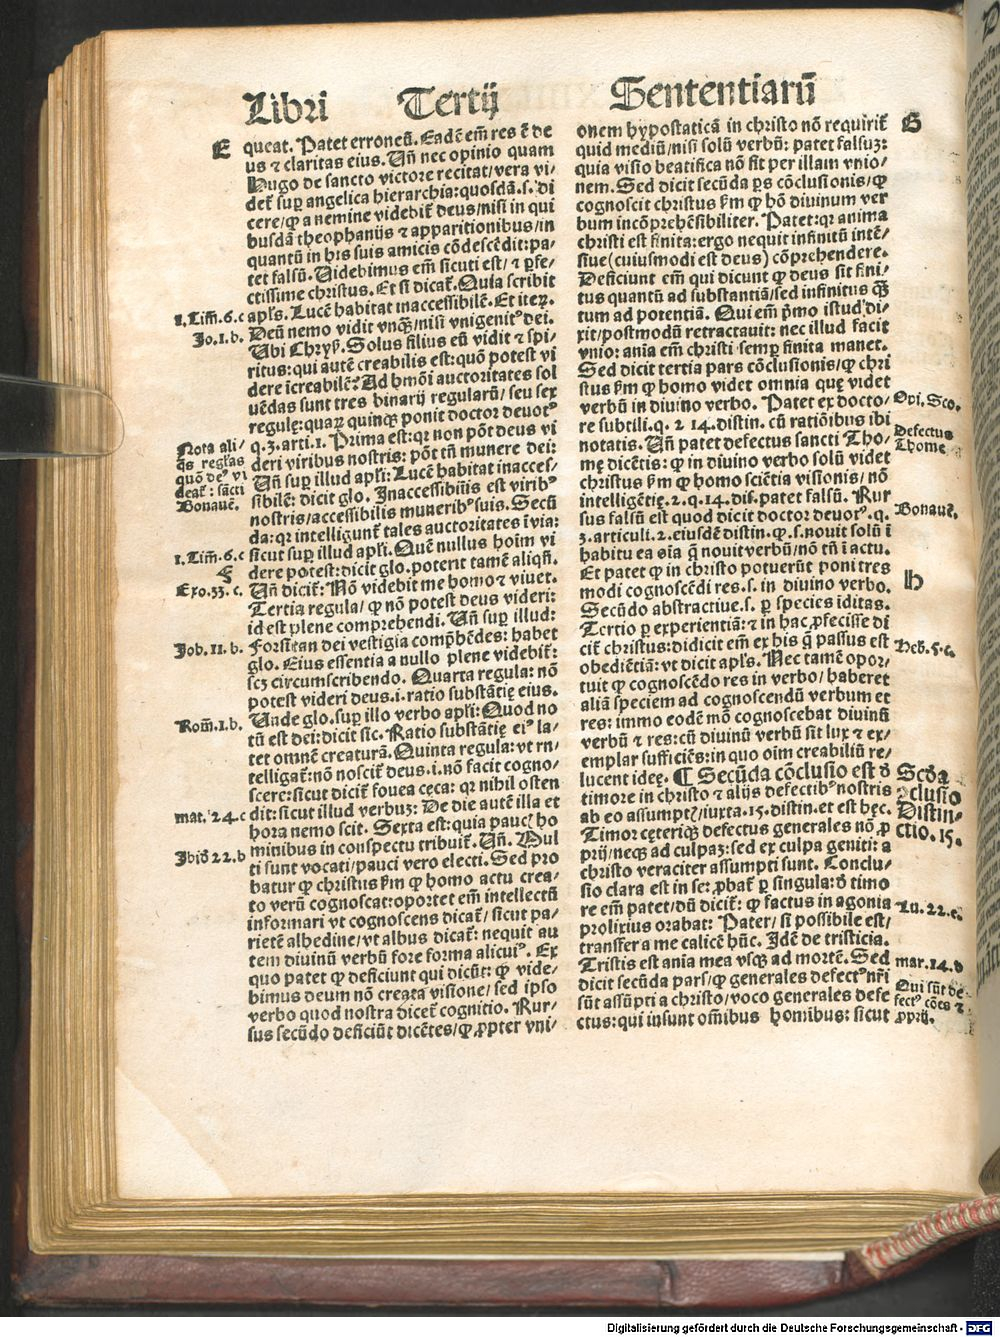 Libri Tertij Sententiarũ
E
queat. Patet erroneũ. Eadẽ em̃ res ẽ de
us ⁊ claritas eius. Uñ nec opinio quam
Hugo de sancto victore recitat/vera vi/
det̃ sup angelica hierarchia: quosdã.s. di
cere/ꝙ a nemine videbit̃ deus/nisi in qui
busdã theophanijs ⁊ apparitionibus/in
quantũ in his suis amicis cõdescẽdit: pa/
tet falsũ. Videbimus em̃ sicuti est/ ⁊ ꝑfe/
ctissime christus. Et si dicat̃. Quia scribit
apl̃s. Lucẽ habitat inaccessibilẽ. Et iteꝝ.
Deũ nemo vidit vnqꝫ/nisi vnigenitꝰ dei.
Ubi Chrys̃. Solus filius eũ vidit ⁊ spi/
ritus: qui autẽ creabilis est: quõ potest vi
dere ĩcreabilẽ? Ad hmõi auctoritates sol
uẽdas sunt tres binarij regularũ/ seu sex
regulę: quaꝝ quinqꝫ ponit doctor deuotꝰ
q.3.arti.1. Prima est: qꝛ non põt deus vi
deri viribus nostris: põt tñ munere dei:
Uñ sup illud apl̃i: Lucẽ habitat inacces/
sibilẽ: dicit glo. Inaccessibilis est viribꝰ
nostris/accessibilis muneribꝰ suis. Secũ
da: qꝛ intelligunt̃ tales auctoritates ĩ via:
sicut sup illud apl̃i. Quẽ nullus hoĩm vi
dere potest: dicit glo. poterit tamẽ aliqñ.
Uñ dicit̃: Nõ videbit me homo ⁊ viuet.
Tertia regula/ ꝙ nõ potest deus videri:
id est plene comprehendi. Uñ sup illud:
Forsitan dei vestigia comp̃hẽdes: habet
glo. Eius essentia a nullo plene videbit̃:
scꝫ circumscribendo. Quarta regula: nõ
potest videri deus.i.ratio substãtię eius.
Unde glo. sup illo verbo apl̃i: Quod no
tũ est dei: dicit sic. Ratio substãtię eiꝰ la/
tet omnẽ creaturã. Quinta regula: vt in/
telligat̃: nõ noscit̃ deus.i.nõ facit cogno/
scere: sicut dicit̃ fouea cęca: qꝛ nihil osten
dit: sicut illud verbuꝫ: De die autẽ illa et
hora nemo scit. Sexta est: quia paucꝭ ho
minibus in conspectu tribuit̃. Uñ. Mul
ti sunt vocati/pauci vero electi. Sed pro
batur ꝙ christus ẽm ꝙ homo actu crea/
to verũ cognoscat: oportet em̃ intellectũ
informari vt cognoscens dicat̃/ sicut pa/
rietẽ albedine/vt albus dicat̃: nequit au
tem diuinũ verbũ fore forma alicuiꝰ. Ex
quo patet ꝙ deficiunt qui dicũt: ꝙ vide/
bimus deum nõ creata visione/ sed ipso
verbo quod nostra dicet̃ cognitio. Rur/
sus secũdo deficiũt dicẽtes/ꝙ ꝓpter vni/
1. Tim̃. 6. c
Jo. 1. b.
Nota ali/
q̃s regl̃as
quõ deꝰ vi
deat̃: sc̃ti
Bonauẽ.
1. Tim̃. 6. c
F
Exo. 33. c.
Job. 11. b.
Rom̃. 1. b.
mat. 24. c
Jbid̃ 22. b
onem hypostaticã in christo nõ requirit̃
quid mediũ/nisi solũ verbũ: patet falsuꝫ:
quia visio beatifica nõ fit per illam vnio/
nem. Sed dicit secũda ps cõclusionis/ꝙ
cognoscit christus ẽm ꝙ hõ diuinum ver
bum incõprehẽsibiliter. Patet: qꝛ anima
christi est finita: ergo nequit infinitũ intẽ/
siue (cuiusmodi est deus) cõprehendere.
Deficiunt em̃ qui dicunt ꝙ deus sit fini/
tus quantũ ad substantiã/sed infinitus qꝫ̃
tum ad potentiã. Qui em̃ p̃mo istud di/
xit/postmodũ retractauit: nec illud facit
vnio: aniã em̃ christi semꝑ finita manet.
Sed dicit tertia pars cõclusionis/ꝙ chri
stus ẽm ꝙ homo videt omnia quę videt
verbũ in diuino verbo. Patet ex docto/
re subtili.q. 2 14.distin. cũ ratiõibus ibi
notatis. Uñ patet defectus sancti Tho/
mę dicẽtis: ꝙ in diuino verbo solũ videt
christus ẽm ꝙ homo sciẽtia visionis/ nõ
intelligẽtię.2.q.14.dis̃. patet falsũ. Rur
sus falsũ est quod dicit doctor deuotꝰ.q.
3.articuli.2.eiusdẽ distin.ꝙ.s.nouit solũ ĩ
habitu ea oĩa q̃ nouit verbũ/nõ tñ ĩ actu.
Et patet ꝙ in christo potuerũt poni tres
modi cognoscẽdi res.s. in diuino verbo.
Secũdo abstractiue.s. ꝑ species ĩditas.
Tertio ꝑ experientiã: ⁊ in hac ꝓfecisse di
cit̃ christus: didicit em̃ ex his q̃ passus est
obediẽtiã: vt dicit apl̃s. Nec tamẽ opor/
tuit ꝙ cognoscẽdo res in verbo/ haberet
aliã speciem ad cognoscendũ verbum et
res: immo eodẽ mõ cognoscebat diuinũ
verbũ ⁊ res: cũ diuinũ verbũ sit lux ⁊ ex/
emplar sufficiẽs: in quo oĩm creabiliũ re/
lucent ideę. ¶ Secũda cõclusio est ð
timore in christo ⁊ alijs defectibꝰ nostris
ab eo assumptꝭ/iuxta.15.distin.et est hęc.
Timor cęteriqꝫ defectus generales nõ ꝓ
prij/neqꝫ ad culpaꝫ: sed ex culpa geniti: a
christo veraciter assumpti sunt. Conclu/
sio clara est in se: ꝓbat̃ ꝑ singula: ð timo
re em̃ patet/dũ dicit̃: ꝙ factus in agonia
prolixius orabat: Pater/ si possibile est/
transfer a me calicẽ hũc. Idẽ de tristicia.
Tristis est anĩa mea vsqꝫ ad mortẽ. Sed
dicit secũda pars/ꝙ generales defectꝰ nr̃i
sũt assũpti a christo/voco generales defe
ctus: qui insunt om̃ibus hoĩnibus: sicut
G
Opi. Sco.
Defectus
Thome
Bonauẽ.
H
Heb̃. 5. c.
Scð̃a
ↄclusio
Distin/
ctio. 15.
Lu. 22. e.
mar. 14. d
Qui sũt de
fectꝰ cõẽs ⁊
ꝓprij.
Digitalisierung gefördert durch die Deutsche Forschungsgemeinschaft - DFG